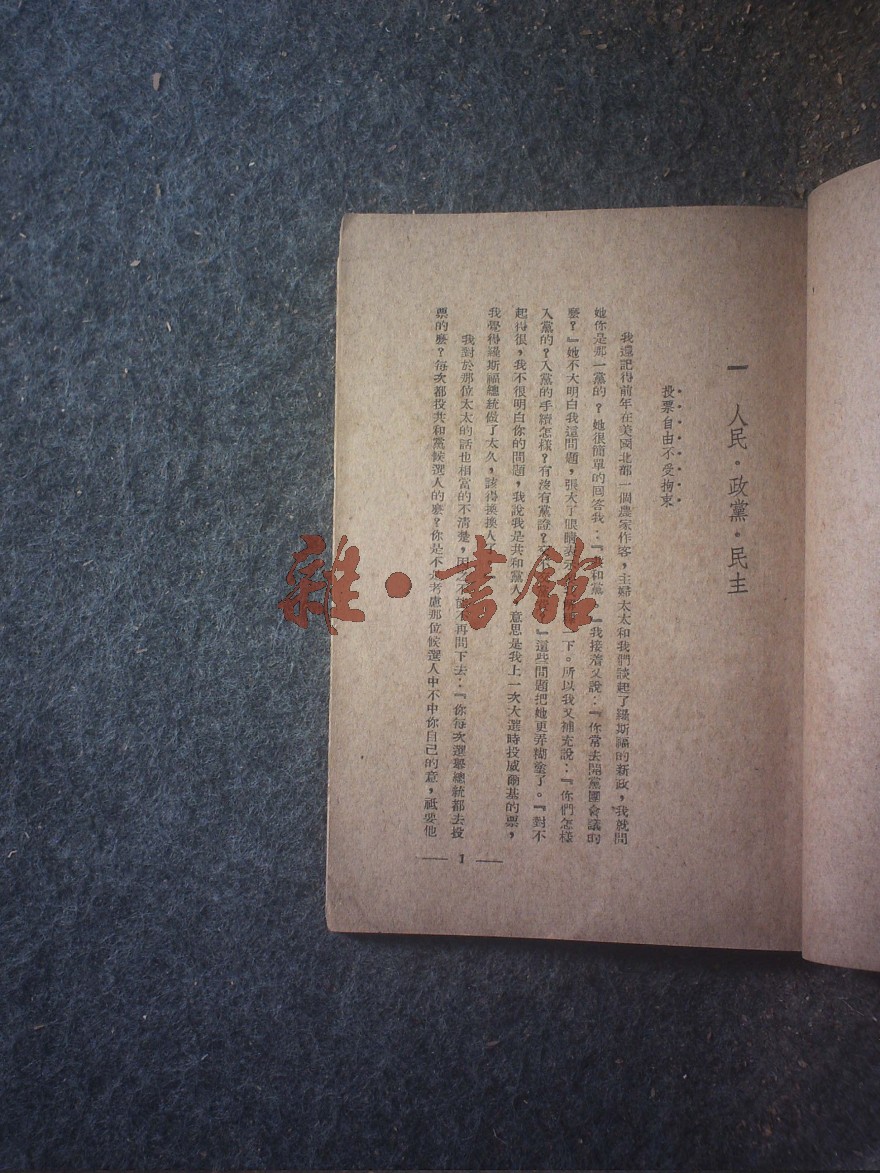 一　人民・政黨・民主
投票自由不受拘束
我還記得前年在美國北部一個農家作客，主婦太太和我們談起了羅斯福的新政，我就問
她你是那一黨的？她很簡單的回答我：『共和黨。』我接着又說：『你常去開黨團會議的
麼？』她不大明白我這問題，張大了眼睛表示 下。所以我又補充說：『你們怎樣
入黨的？入黨的手續怎樣？有沒有黨證？ 』這些問題把她更弄糊塗了。『對不
起得很，我不很明白你的問題，我說我是共和黨人，意思是我上一次大選時投威爾基的票，
我覺得羅斯福總統做了太久，該得換換人了
我對於那位太太的話也相當的不清楚，因之不能不再問下去：『你每次選舉總統都去投
票的麼？每次都投共和黨候選人的麼？你是不是考慮那位候選人中不中你自己的意，祗要他
1
雜・書館